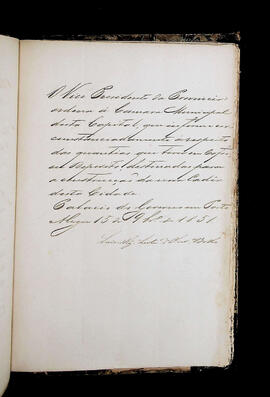 O Vice Presidente da Provincia
ordena á Camara Municipal
desta Capital, que informe cir
cunstanciadamente a respeito
das quantias que tem em Cofre,
ou deposito, destinadas para
a construcção da nova Cadêa
desta Cidade
Palacio do Governo em Porto
Alegre 15 de 9br.º de 1851